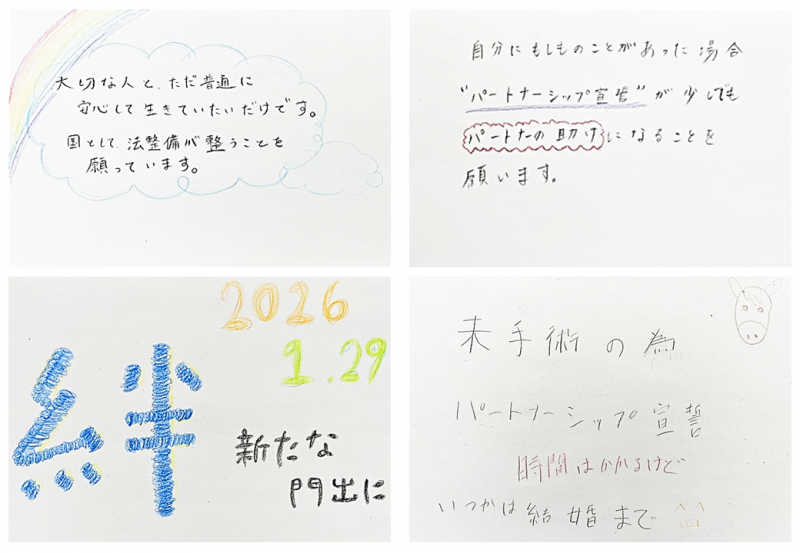 大切な人と、ただ普通に
安心して生きていたいだけです。
国として、法整備が整うことを
願っています。
自分にもしものことがあった場合
"パートナーシップ宣誓"が少しでも
パートナーの助けになることを
願います。
2026
1.29
絆
新たな
門出に
未手術の為
パートナーシップ宣誓
時間はかかるけど
いつかは結婚まで^^